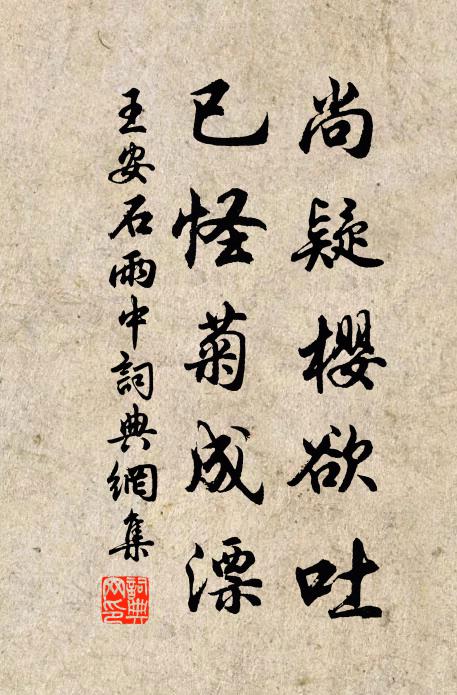 尚疑櫻欲吐
已怪菊成漂
王安石雨中詞典網集
詞典網印